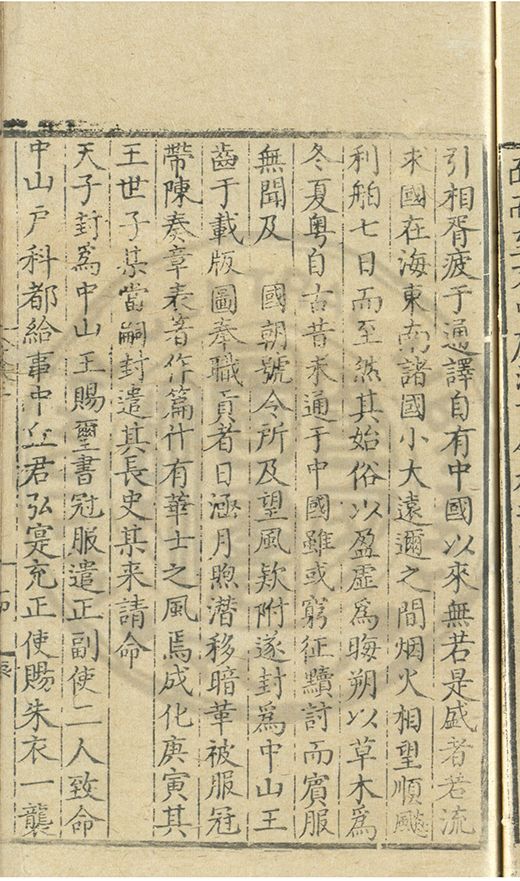 引相胥疲于通譯自有中國以來無若是盛者若流
求國在海東南諸國小大遠邇之間烟火相望順飈
利舶七日而至然其始俗以盈虛爲晦朔以草木爲
冬夏粤自古昔未通于中國雖或窮征黷討而賓服
無聞及　國朝號令所及望風欵附遂封爲中山王
齒于載版圖奉職貢者日涵月煦潜移暗革被服冠
帶陳奏章表著作篇什有華士之風焉成化庚寅其
王世子某當嗣封遣其長史某来請命
天子封爲中山王賜璽書冠服遣正副使二人致命
中山戸科都給事中丘君弘寔充正使賜朱衣一襲